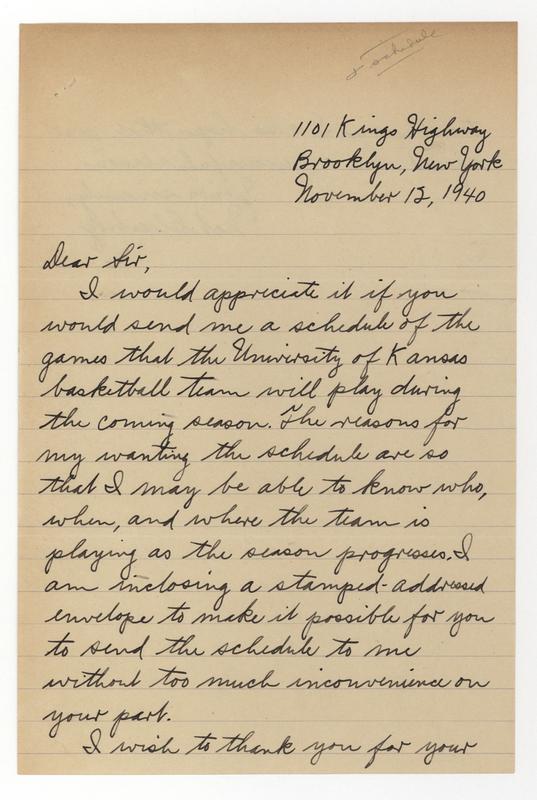 schedule
1101 Kings Highway
Brooklyn, New York
November 12, 1940
Dear Sir,
I would appreciate it if you
would send me a schedule of the
games that the University of Kansas
basketball team will play during
the coming season. The reasons for
my wanting the schedule are so
that I may be able to know who,
when, and where the team is
playing as the season progresses. I
am inclosing a stamped-addressed
envelope to make it possible for you
to send the schedule to me
without too much inconvenience on
your part.
I wish to thank you for your